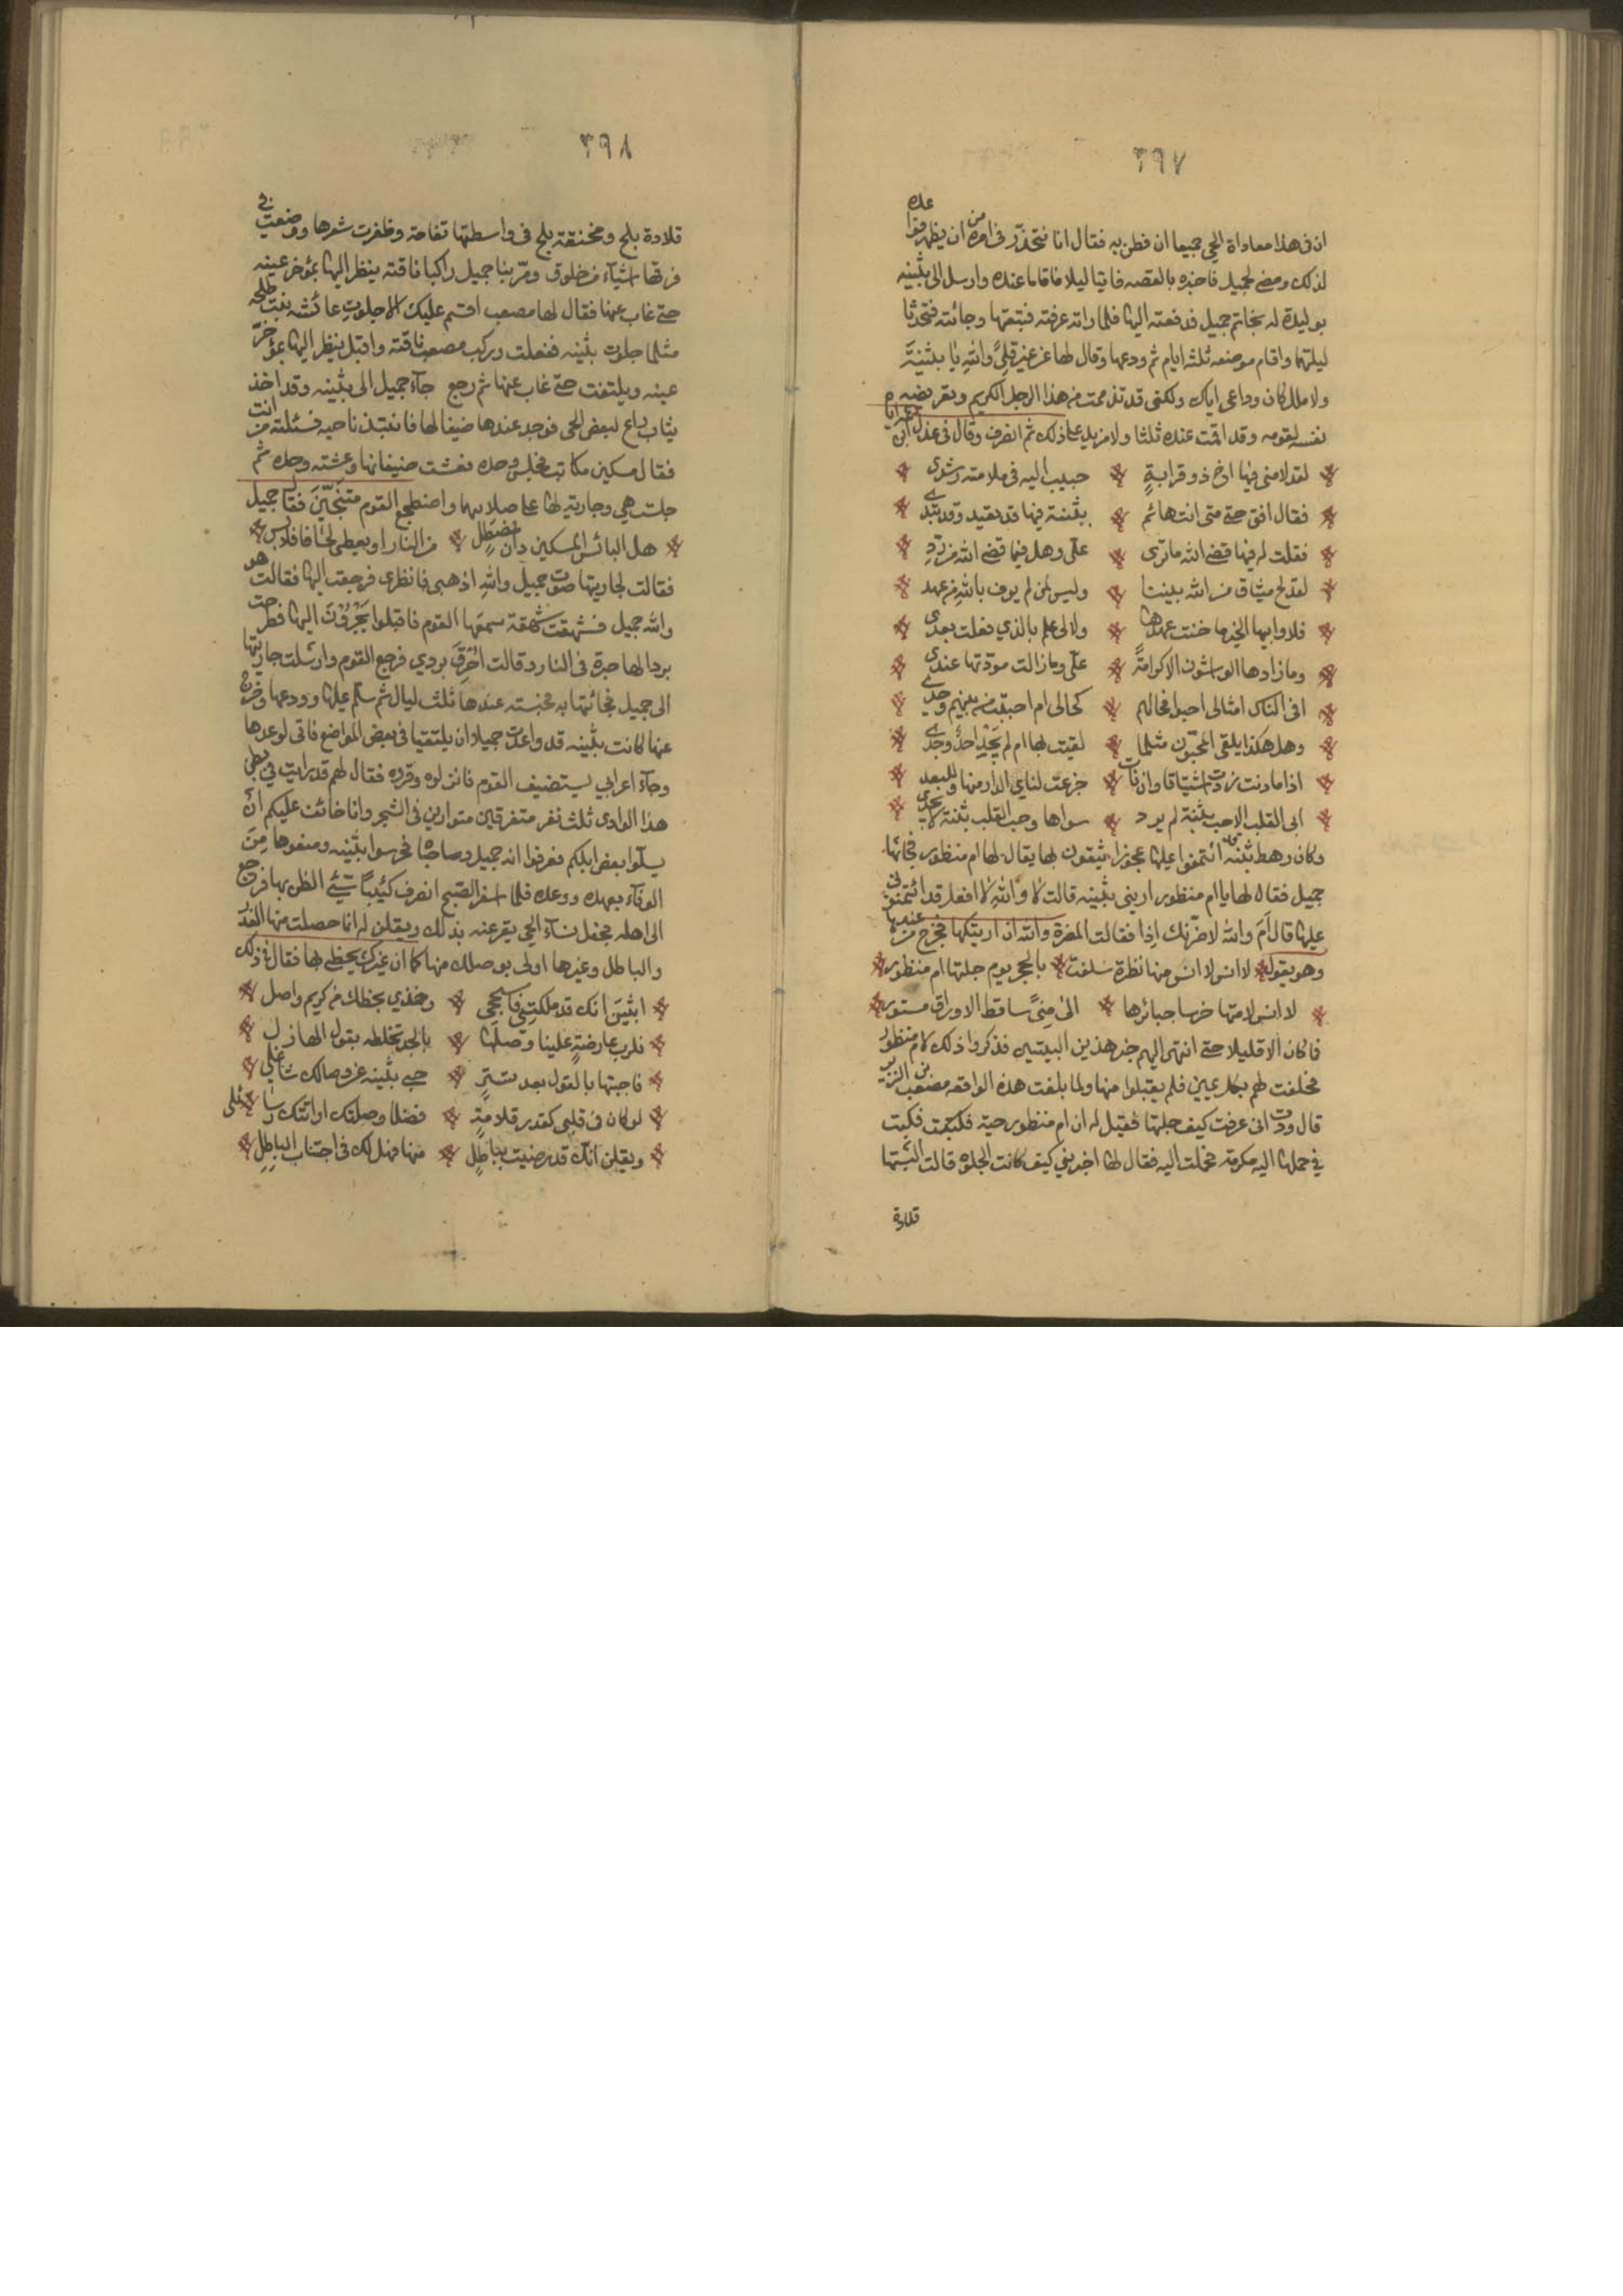 ٣٩٧
ان في هذا معاداة الحي جميعا ان فطن به فقال انا نتحذر في امره من ان يظهر فوا عده
لذلك ومضى لجميل فاخبره بالقصه فاتيا ليلا فاقاما عنده وارسل الى بثينه
بوليدة له بخاتم جميل فدفعته اليها فلما راته عرفته فتبعتها وجائته فتحدثا
ليلتهما واقام موضعه ثلثه ايام ثم ودعها وقال لها عن غير قلىً واللهِ يا بثينةَ
ولا ملل كان وداعى اياك ولكنى قد تذممت من هذا الرجل الكريم وتعريضه
نفسه لقومه وقد اقمت عنده ثلثا ولا مزيد على ذلك ثم انصرف وقال فى عذل ابن
لقد لامنى فيها اخ ذو قرابةٍ حبيب اليه فى ملامته رشدى
فقال افق حتى متى انت هائم ببثنة فيها قد تعيد وقد تبدى
فقلت له فيها قضى الله ماترى علىّ وهل فيما قضى الله من ردّ
لقد لج ميثاق من الله بيننا وليس لمن لم يوف بالله من عهد
فلا وابيها الخير ما خنت عهدها ولا لى علم بالذي فعلت بعدى
وما زادها الواشون الا كرامةً علىّ وما زالت مودّتها عندى
افى الناس امثالى احبوا فحالهم كحالى ام احببت من بينهم وحدى
وهل هكذا يلقى المحبّون مثلما لقيت بها ام لم يَجِد احدٌ وجدى
اذا ما دنت زدت اشتياقا وان نات جزعت لناي الدار منها وللبعد
ابى القلب الا حب بثنة لم يرد سواها وحب القلب بثنة لا يجدى
وكان رهط بثينة ائتمنوا عليها عجوزا يثقون بها يقال لها ام منظور فجائها
جميل فقال لها يا ام منظور اريني بثينه قالت لا والله لا افعل قد ائتمنونى
عليها قال أَمَ والله لاضرّنك اِذا فقالت المضرة والله ان اريتكها فخرج من عندها
وهو يقول لا انس لا انس منها نظرة سلفت بالحجر يوم جلتها ام منظور
لا انس لامتها خرسا جبائرها الىّ من ساقط الاوراق مستور
فما كان الا قليلا حتى انتهى اليهم خبر هذين البيتين فذكروا ذلك لام منظور
فحلفت لهم بكل يمين فلم يقبلوا منها ولما بلغت هذه الواقعه مصعب بن الزبير
قال وددت انى عرفت كيف جلتها فقيل له ان ام منظور حية فكتب
في حملها اليه مكرمة فحملت اليه فقال لها اخبريني كيف كانت الجلوه قالت البستها
قلادة
٣٩٨
قلادة بلح ومخنقة بلح فى واسطتها تفاحة وظفرت شعرها ووضعت فى
فرقها شيآء من خلوق ومرّ بنا جميل راكبا ناقته ينظر اليها بمؤخر عينه
حتى غاب عنها فقال لها مصعب اقسم عليك الا جلوتِ عائشه بنت طلحه
مثلما جلوت بثينه ففعلت وركب مصعب ناقته واقبل ينظر اليها بمؤخّر
عينه ويلتفت حتى غاب عنها ثم رجع جآء جميل الى بثينه وقد اخذ
ثياب راع لبعض الحى فوجد عندها ضيفا لها فانتبذ ناحيه فسئلته من انت
فقال مسكين مكاتب فجلس وحده فعشت ضيفانها وعشته وحده ثم
جلست هي وجارية لها على صلائهما واضطجع القوم متنحّينَ فقال جميل
هل البائس المسكين دان فمصطل من النار او يعطى لحافا فلابس
فقالت لجاريتها صوت جميل والله اذهبى فانظرى فرجعت اليها فقالت هو
والله جميل فشهقت شهقة سمعها القوم فاقبلوا يَجْرُوْنَ اليها فطرحت
بردا لها حبرة فى النار وقالت اُحْرِقَ بردي فرجع القوم وارسلت جاريتها
الى جميل فجائتها به فحبسته عندها ثلث ليال ثم سلّم عليها وودعها وخرج
عنها كانت بثينه قد واعدت جميلا ان يلتقيا فى بعض المواضع فاتى لوعدها
وجآء اعرابي يستضيف القوم فانزلوه وقروه فقال لهم قد رايت فى بطن
هذا الوادى ثلث نفر متفرقين متوارين فى الشجر وانا خائف عليكم أن
يسلّوا بعض ابلكم فعرفوا انه جميل وصاحباه فحرسوا بثينه ومنعوها مِنَ
الوفآء بعهده ووعده فلما اسفر الصّبح انصرف كئيباً سَيّئَ الظن بها فرجع
الى اهله فجعل نسآء الحي يقرعنه بذلك ويقلن له انما حصلت منها الغدر
والباطل وغيرها اولى بوصلك منها كما ان غيرك يحظى بها فقال فى ذلك
ابثينَ انك قد ملكتِنى فاسجحي وخذي بحظك من كريم واصل
فلرب عارضةٍ علينا وصلَها بالجد تخلطه بقول الهازل
فاجبتها بالقول بعد تستّرٍ حبى بثينه عن وصالك شاغلي
لو كان فى قلبى كقدر قلامةٍ فضلا وصلتك او اتتك رسائلى
ويقلن انك قد رضيت بباطلٍ منها فهل لك فى اجتناب الباطلِ